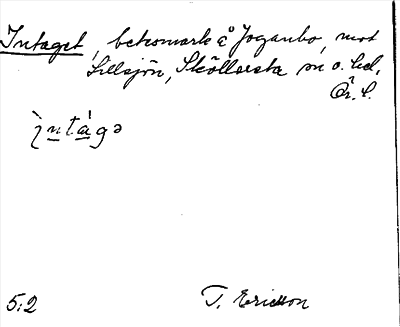 Intaget, betesmark å Joganbo, mot
Lillsjön, Sköllersta sn o. hd,
Ör. l.
ìntàgə
5:2 T. Ericsson